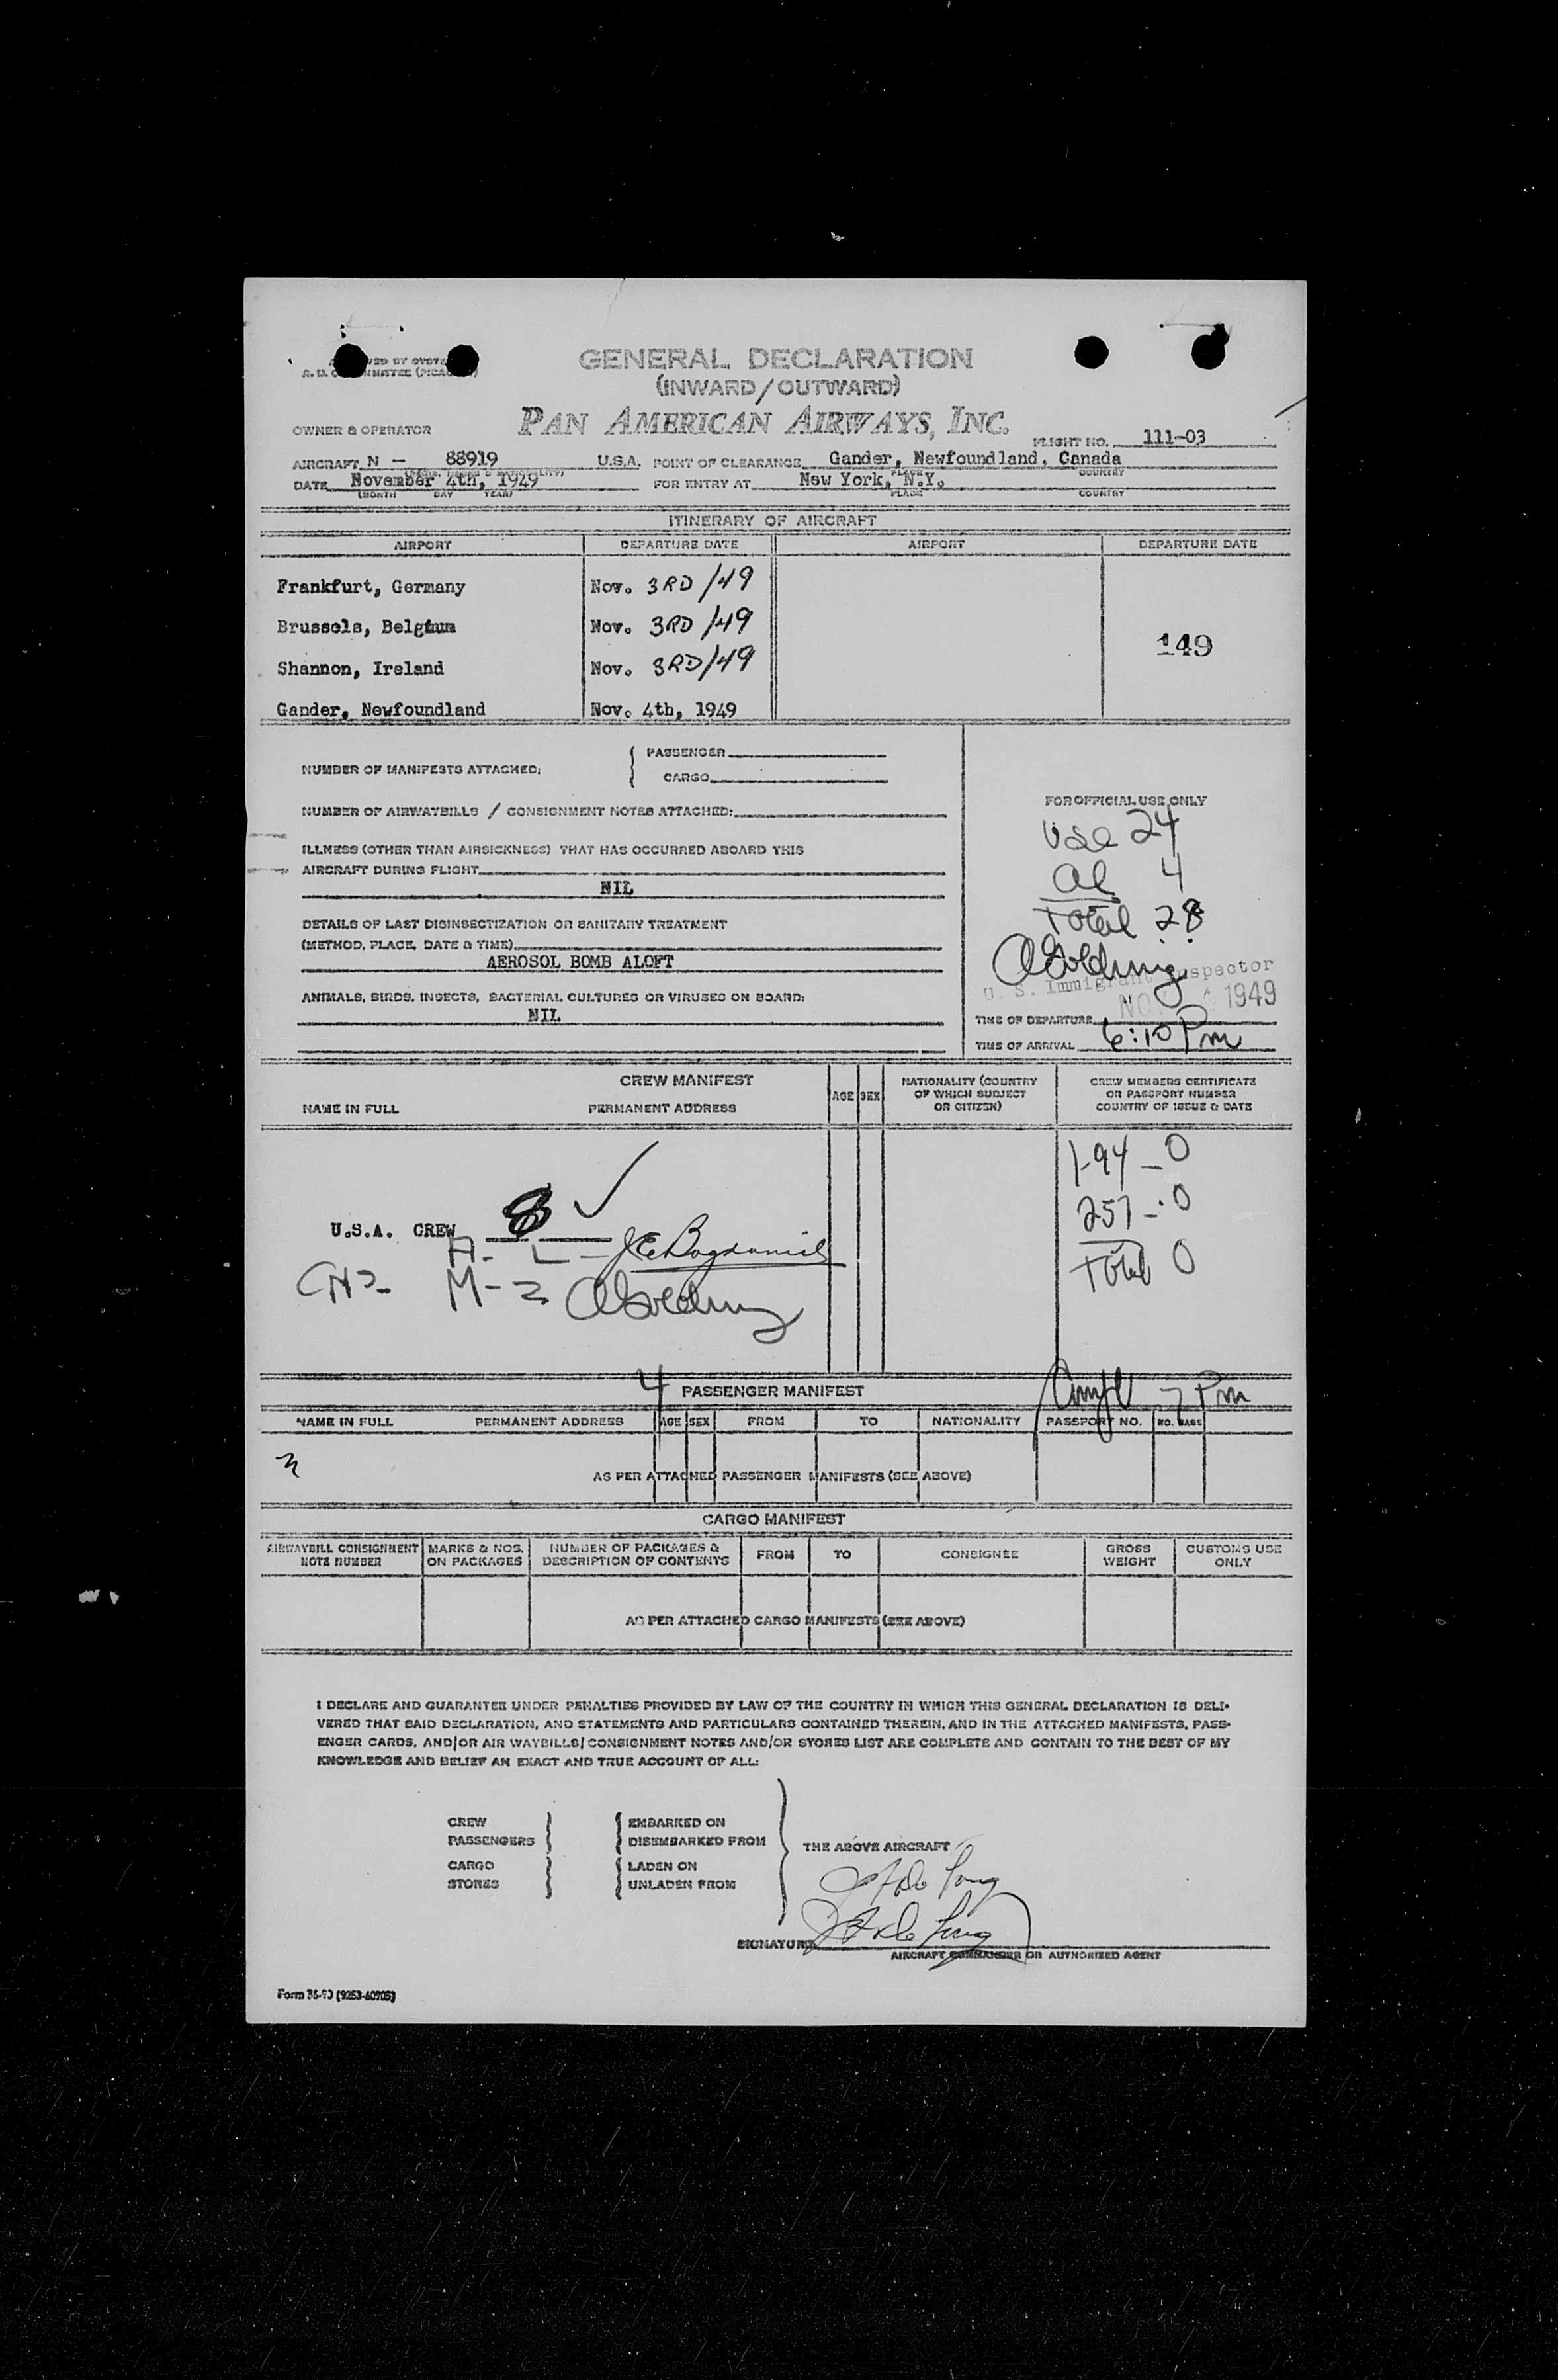 GENERAL DECLARATION
(INWARD/OUTWARD)
PAN AMERICAN AIRWAYS, INC.
OWNER & OPERATOR
FLIGHT NO. 111-03
AIRCRAFT N - 88919 U.S.A. POINT OF CLEARANCE Gander, Newfoundland, Canada
PLACE COUNTRY
DATE November 4th, 1949 FOR ENTRY AT New York, N.Y.
(MONTH DAY YEAR) PLACE COUNTRY
ITINERARY OF AIRCRAFT
AIRPORT DEPARTURE DATE AIRPORT DEPARTURE DATE
Frankfurt, Germany Nov. 3RD/49
Brussels, Belgium Nov. 3RD/49
149
Shannon, Ireland Nov. 3RD/49
Gander, Newfoundland Nov. 4th, 1949
NUMBER OF MANIFESTS ATTACHED: PASSENGER
CARGO
NUMBER OF AIRWAYBILLS / CONSIGNMENT NOTES ATTACHED:
ILLNESS (OTHER THAN AIRSICKNESS) THAT HAS OCCURRED ABOARD THIS
AIRCRAFT DURING FLIGHT
NIL
DETAILS OF LAST DISINSECTIZATION OR SANITARY TREATMENT
(METHOD, PLACE, DATE & TIME)
AEROSOL BOMB ALOFT
ANIMALS, BIRDS, INSECTS, BACTERIAL CULTURES OR VIRUSES ON BOARD:
NIL
FOR OFFICIAL USE ONLY
24
al 4
Total 28
U. S. Immigrant Inspector
NOV 4 1949
TIME OF DEPARTURE
TIME OF ARRIVAL 6:10 Pm
CREW MANIFEST
NAME IN FULL PERMANENT ADDRESS AGE SEX NATIONALITY (COUNTRY OF WHICH SUBJECT OR CITIZEN) CREW MEMBERS CERTIFICATE OR PASSPORT NUMBER COUNTRY OF ISSUE & DATE
1-94 - 0
257 - 0
Total 0
U.S.A. CREW 8
A. L -
M-2
4 PASSENGER MANIFEST 7 Pm
NAME IN FULL PERMANENT ADDRESS AGE SEX FROM TO NATIONALITY PASSPORT NO. NO. BAGS
AS PER ATTACHED PASSENGER MANIFESTS (SEE ABOVE)
CARGO MANIFEST
AIRWAYBILL CONSIGNMENT NOTE NUMBER MARKS & NOS. ON PACKAGES NUMBER OF PACKAGES & DESCRIPTION OF CONTENTS FROM TO CONSIGNEE GROSS WEIGHT CUSTOMS USE ONLY
AS PER ATTACHED CARGO MANIFESTS (SEE ABOVE)
I DECLARE AND GUARANTEE UNDER PENALTIES PROVIDED BY LAW OF THE COUNTRY IN WHICH THIS GENERAL DECLARATION IS DELI-
VERED THAT SAID DECLARATION, AND STATEMENTS AND PARTICULARS CONTAINED THEREIN, AND IN THE ATTACHED MANIFESTS, PASS-
ENGER CARDS, AND/OR AIR WAYBILLS/ CONSIGNMENT NOTES AND/OR STORES LIST ARE COMPLETE AND CONTAIN TO THE BEST OF MY
KNOWLEDGE AND BELIEF AN EXACT AND TRUE ACCOUNT OF ALL:
CREW EMBARKED ON
PASSENGERS DISEMBARKED FROM THE ABOVE AIRCRAFT
CARGO LADEN ON
STORES UNLADEN FROM
SIGNATURE
AIRCRAFT COMMANDER OR AUTHORIZED AGENT
Form 36-90 (9253-60905)